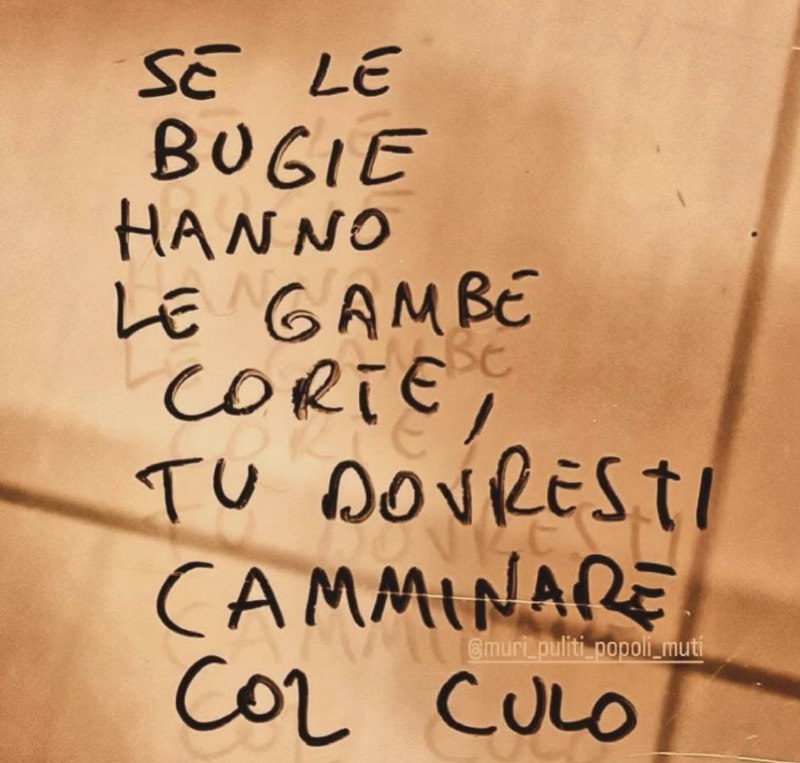 SE LE
BUGIE
HANNO
LE GAMBE
CORTE,
TU DOVRESTI
CAMMINARE
@muri_puliti_popoli_muti
COL CULO